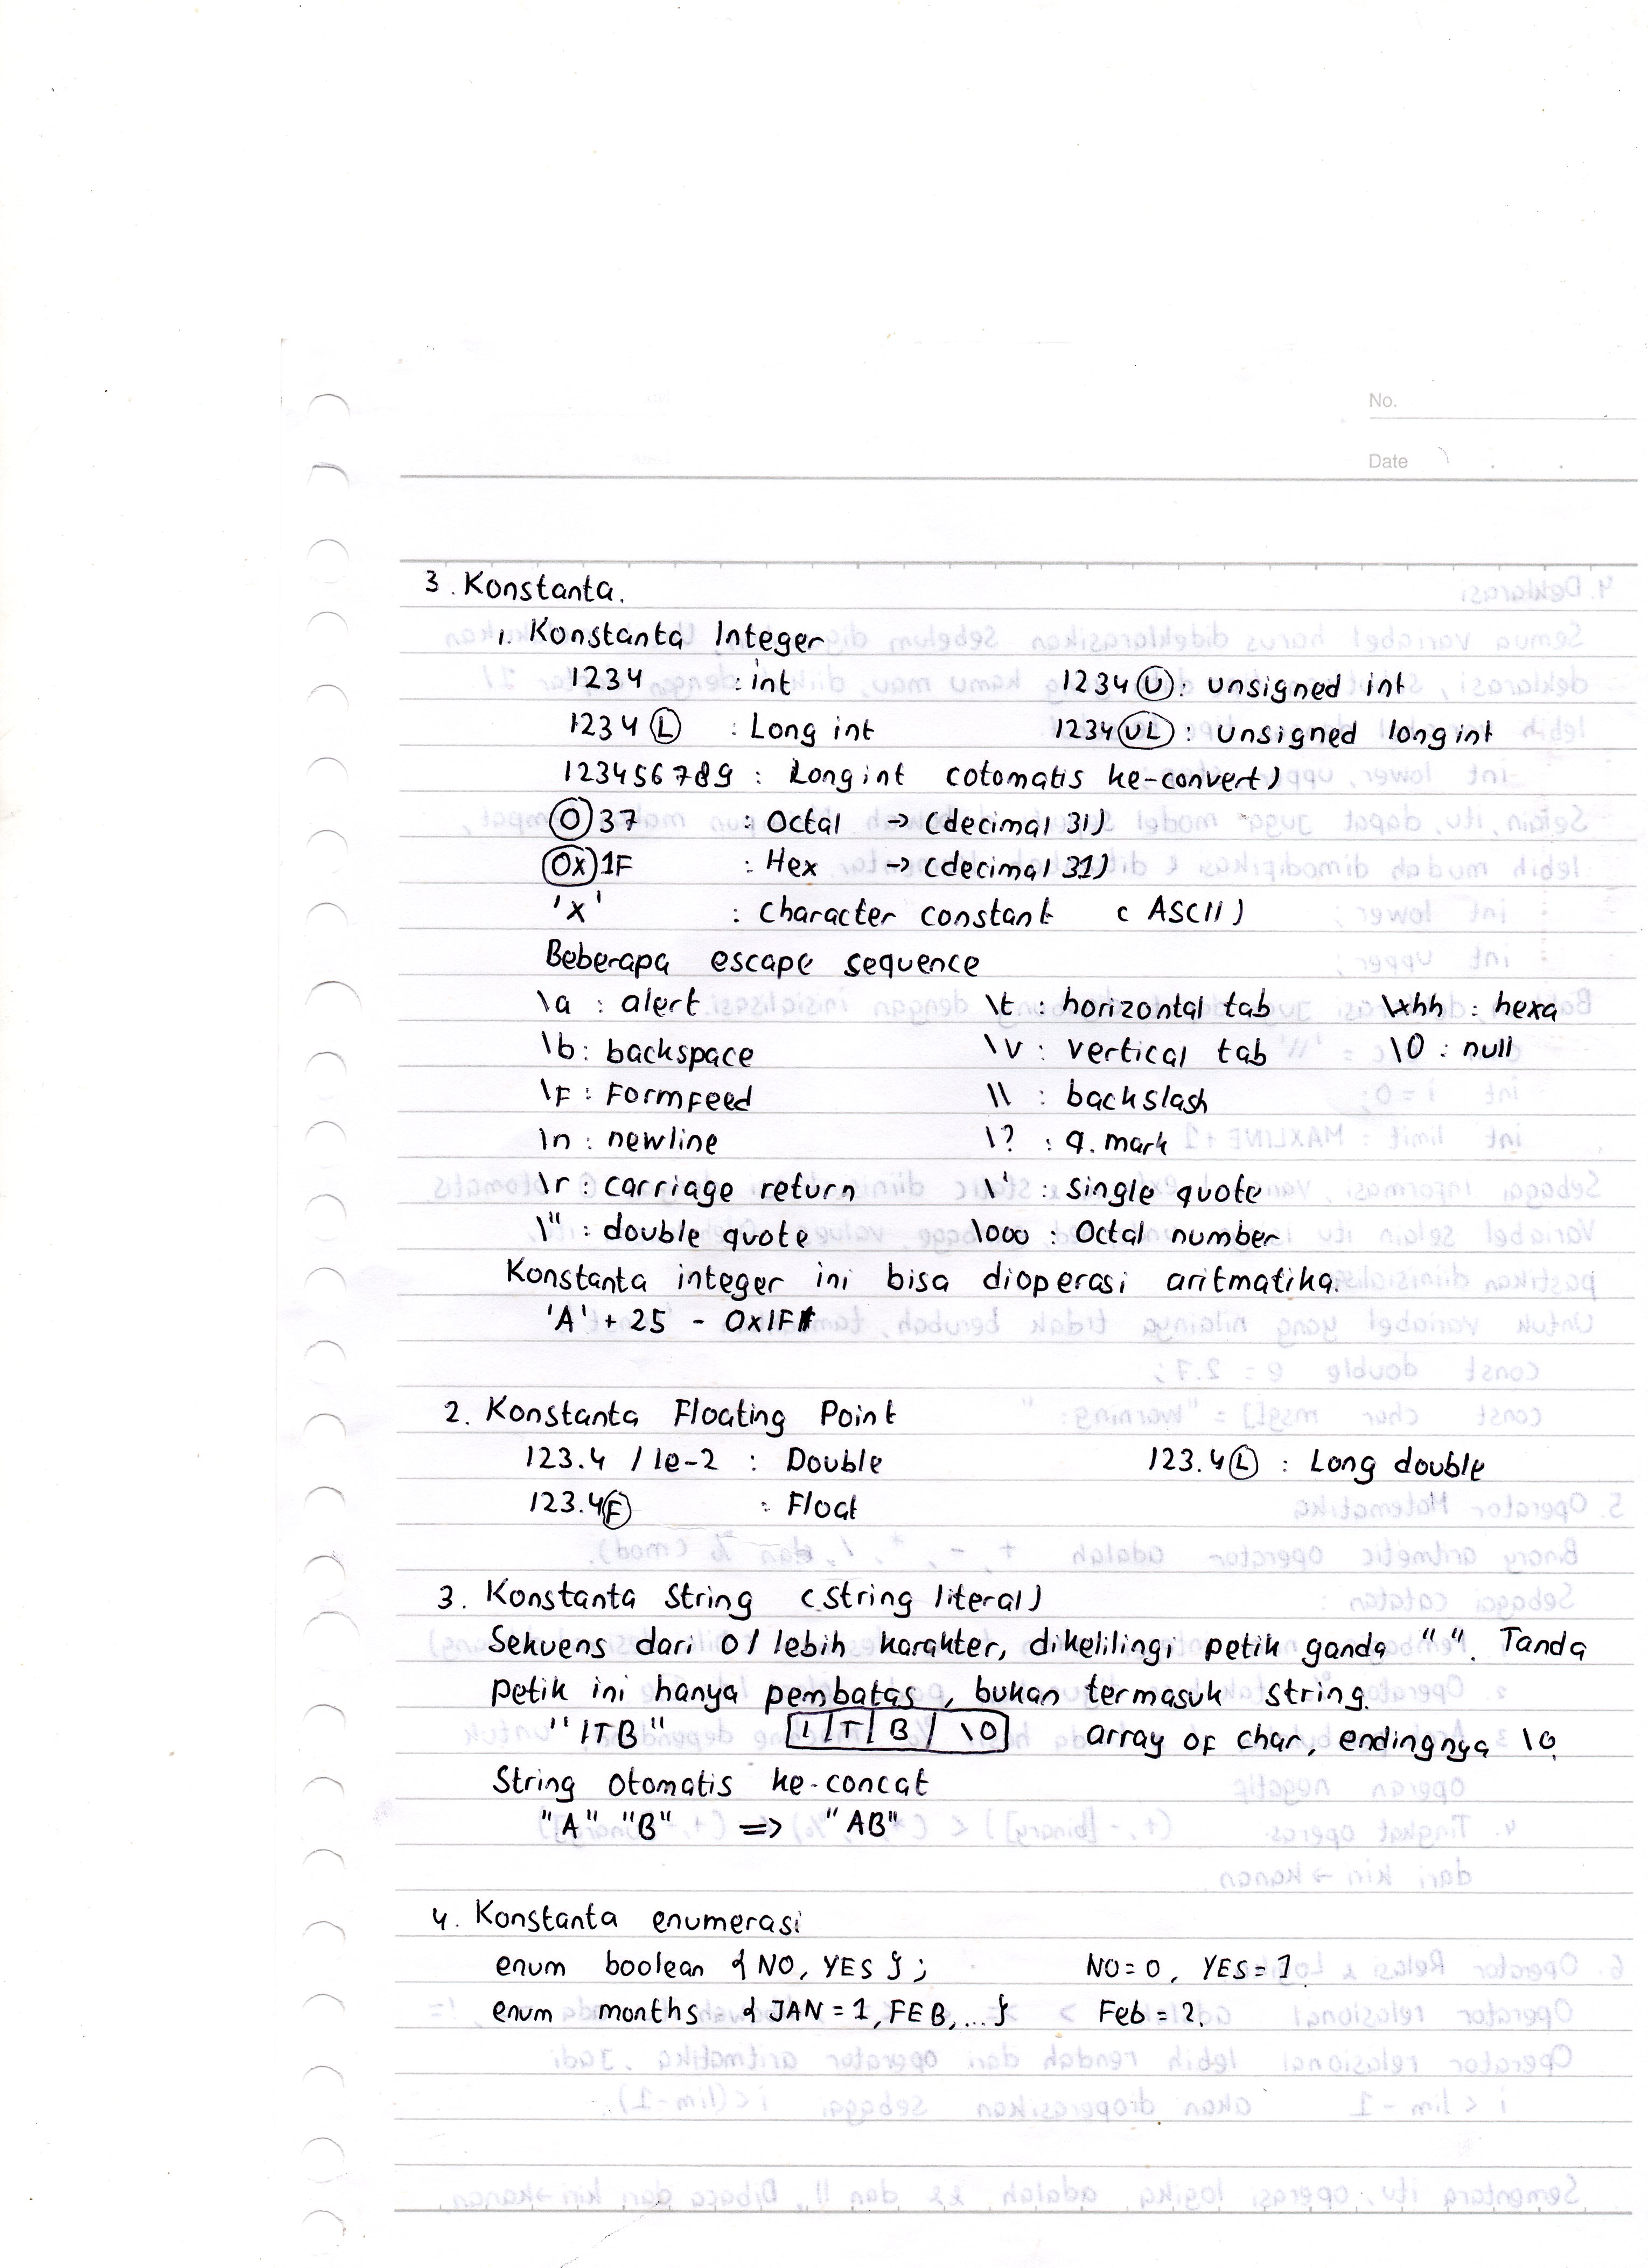 No.
Date
3. Konstanta.
1. Konstanta Integer
1234 : int 1234 U : unsigned int
1234 L : Long int 1234 UL : unsigned long int
123456789 : Long int (otomatis ke-convert)
037 : Octal → (decimal 31)
0x1F : Hex → (decimal 31)
'x' : Character constant (ASCII)
Beberapa escape sequence
\a : alert \t : horizontal tab \xhh : hexa
\b : backspace \v : vertical tab \0 : null
\F : FormFeed \\ : backslash
\n : newline \? : q. mark
\r : carriage return \' : single quote
\" : double quote \ooo : Octal number
Konstanta integer ini bisa dioperasi aritmatika.
'A' + 25 - 0x1F
2. Konstanta Floating Point
123.4 / 1e-2 : Double 123.4 L : Long double
123.4F : Float
3. Konstanta String (String literal)
Sekuens dari 0 / lebih karakter, dikelilingi petik ganda " ". Tanda
petik ini hanya pembatas, bukan termasuk string.
"ITB" I | T | B | \0 array of char, endingnya \0.
String otomatis ke-concat
"A" "B" => "AB"
4. Konstanta enumerasi
enum boolean { NO, YES } ; NO = 0, YES = 1.
enum months = { JAN = 1, FEB, ... } Feb = 2.